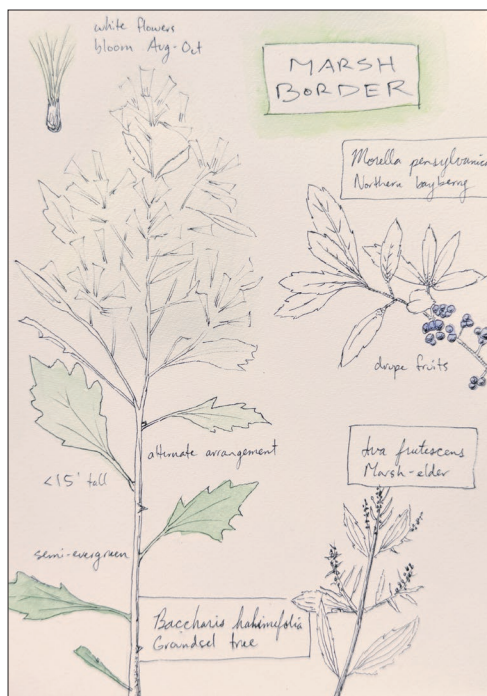 white flowers
bloom Aug-Oct
MARSH
BORDER
Morella pensylvanica
Northern bayberry
drupe fruits
alternate arrangement
<15' tall
Iva frutescens
Marsh-elder
semi-evergreen
Baccharis halimifolia
Groundsel tree